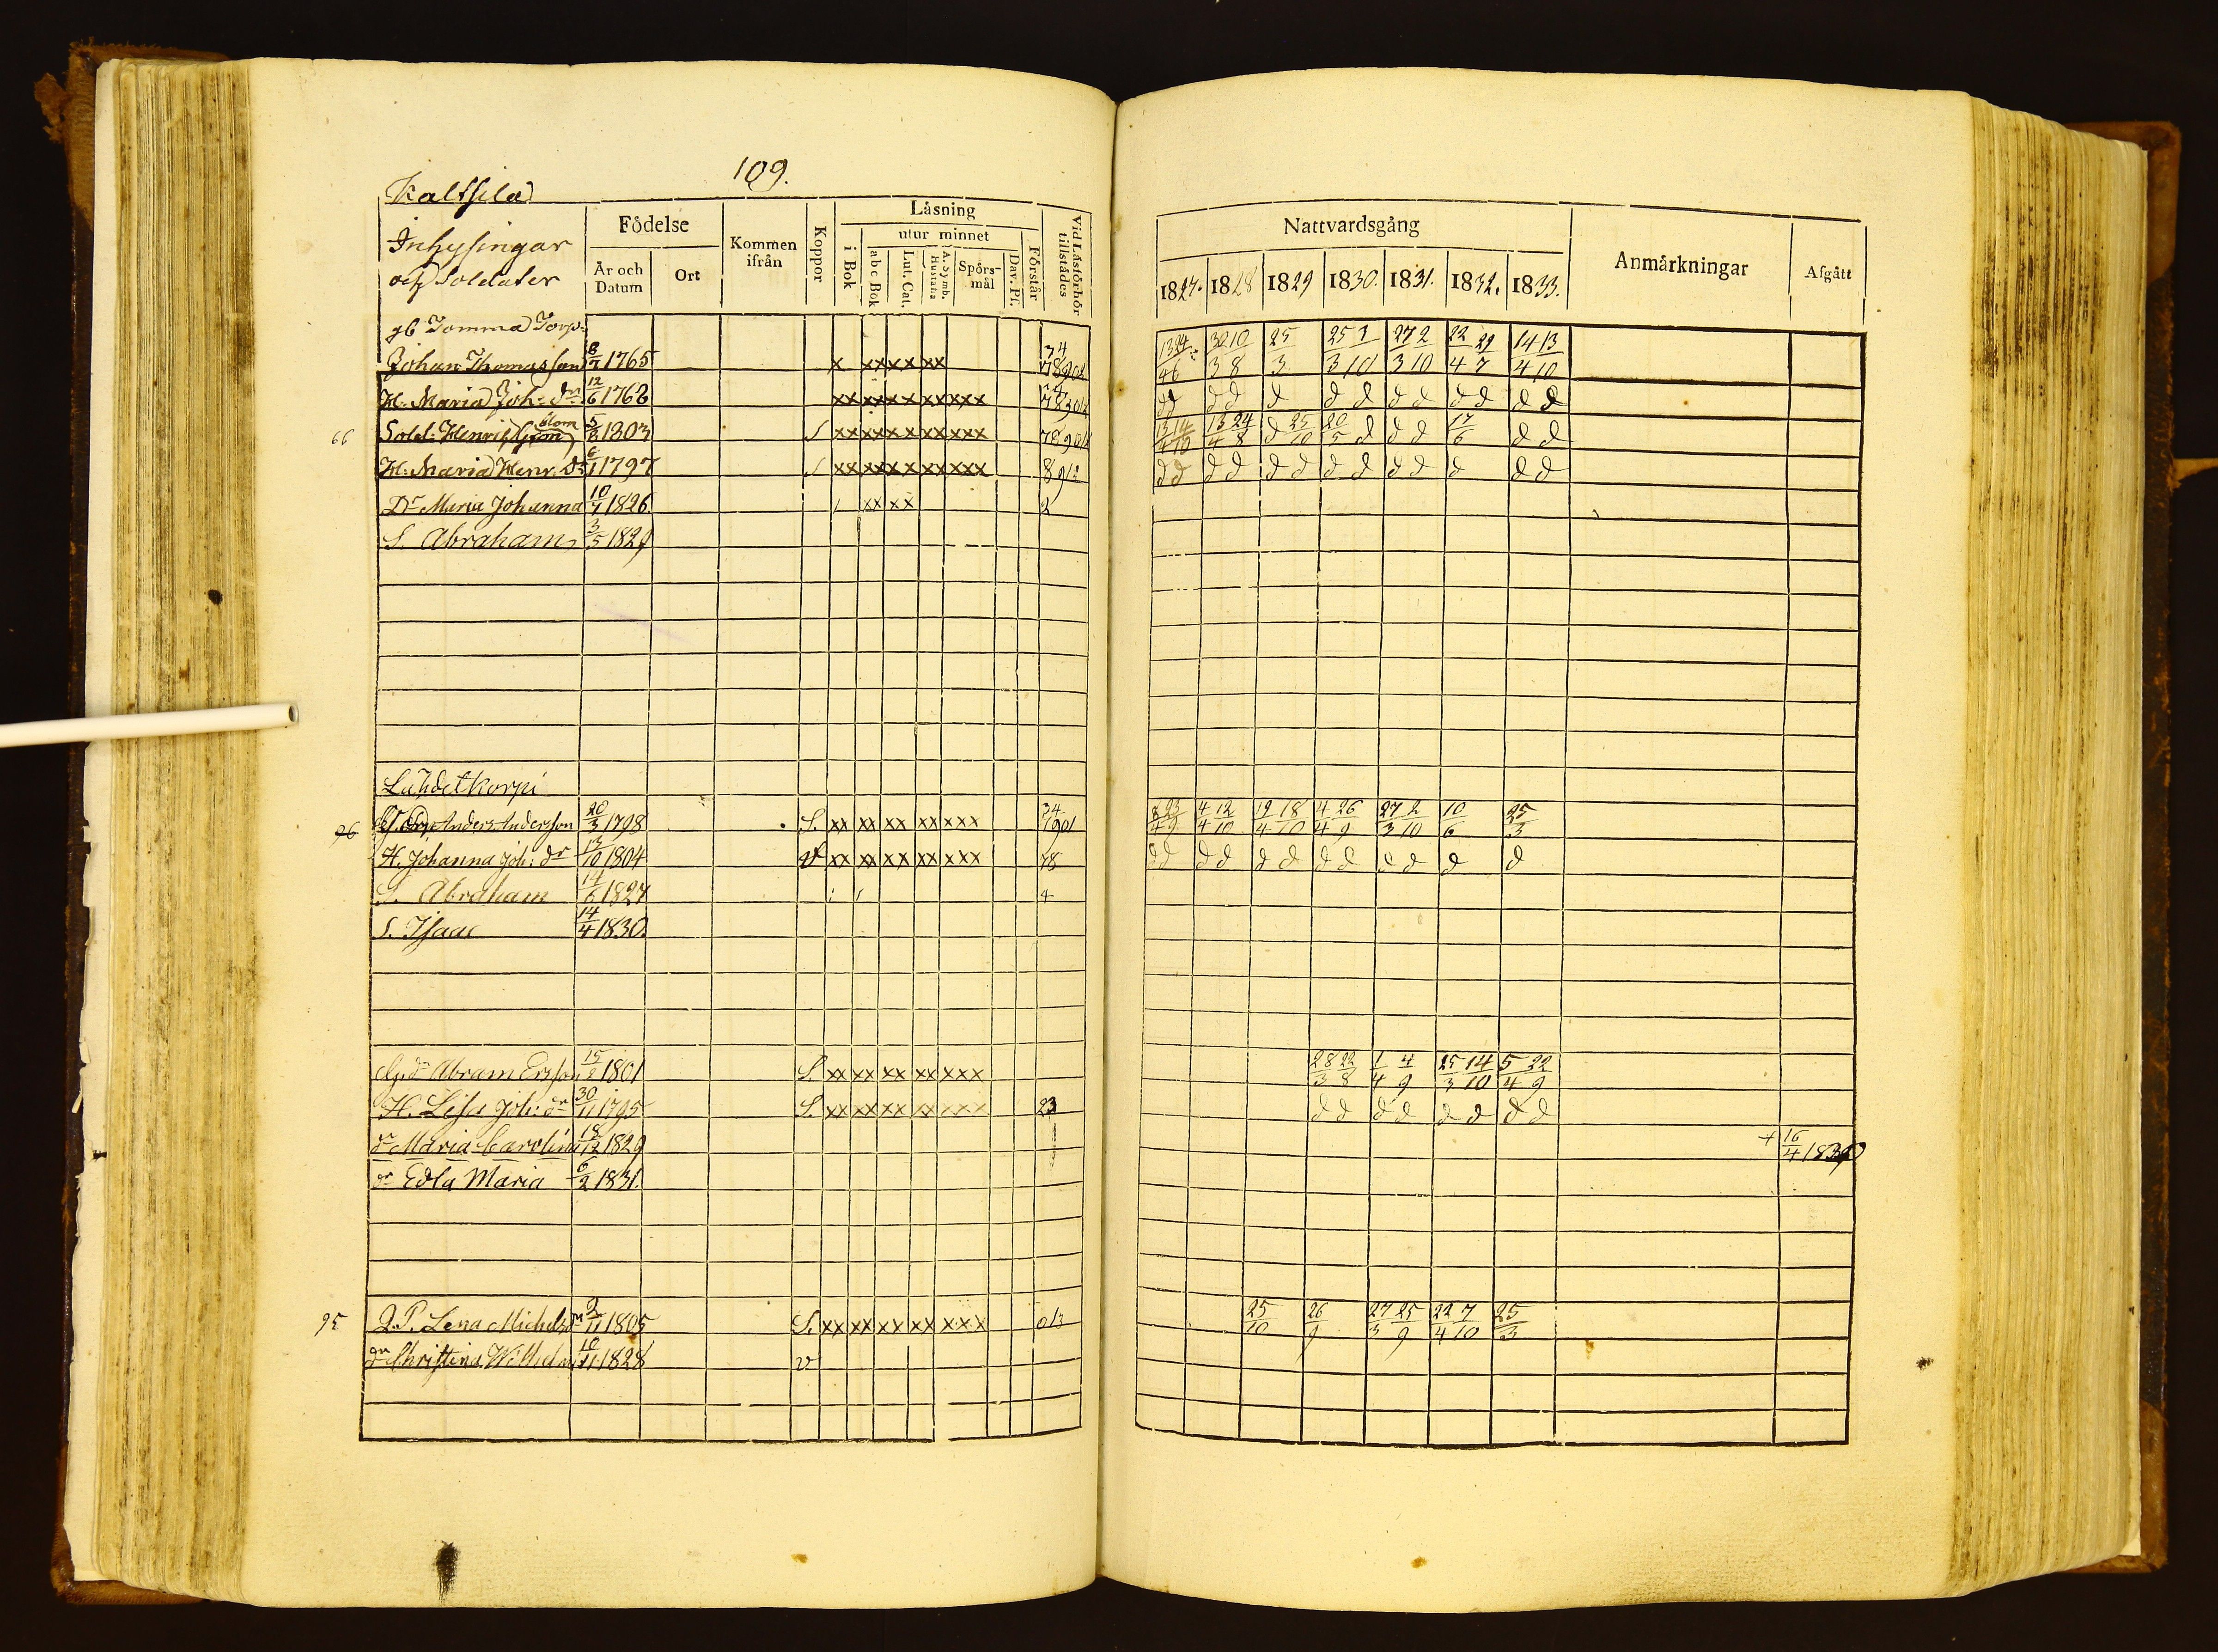 109.
Kaltsila
Inhysingar
och Soldater
Födelse
År och Datum
Ort
Kommen ifrån
Koppor
Läsning
i Bok
utur minnet
abc Bok
Lut. Cat.
A. Symb. Hustafla
Spörs-mål
Dav. Ps.
Förstår
Vid Läsförhör tillstädes
Nattvardsgång
1827. 1828 1829 1830. 1831. 1832. 1833.
Anmärkningar
Afgått
gb Tomma Torp.
Johan Thomasson 8/7 1765 x xx xx xx 34 78901 13 24/4 6 30 10/3 8 25/3 25 1/3 10 27 2/3 10 22 29/4 7 14 13/4 10
H. Maria Joh. dr. 12/6 1762 xx xx xx xx xxx d d d d d d d d d d d d d
66 Sold: Henric blom 5/8 1803 S xx xx xx xx xxx 13 14/4 10 13 24/4 8 d 25/10 20/5 d d d 17/6 d d
H: Maria Henr. dr 6/1 1797 S xx xx xx xx xxx 8912 d d d d d d d d d d d d d
Dr Maria Johanna 10/7 1826 / xx xx 2
S. Abraham 3/5 1829
Lähdetkorpi
96 Anders Andersson 20/3 1798 S. xx xx xx xx xxx 34 7901 8 23/4 9 4 12/4 10 19 18/4 10 4 26/4 9 27 2/3 10 10/6 25/3
H. Johanna Joh: dr 13/10 1804 v xx xx xx xx xxx 78 d d d d d d d d d d d d
S. Abraham 14/6 1827 4
S. Isaac 14/4 1830.
Abram Ersson 15/2 1801 S. xx xx xx xx xxx 28 22/3 8 1 4/4 9 25 14/3 10 5 22/4 9
H. Lisa Joh: dr 30/11 1795 S. xx xx xx xx xxx 23 d d d d d d d d
dr Maria Carolina 18/12 1829 + 16/4 1830
dr Edla Maria 6/2 1831.
95 Q.P. Lena Michelsdr 9/11 1805 S. xx xx xx xx xxx 013 25/10 26/9 27 25/3 9 22 7/4 10 25/3
dr Christina Wilhelm 10/11 1828 v